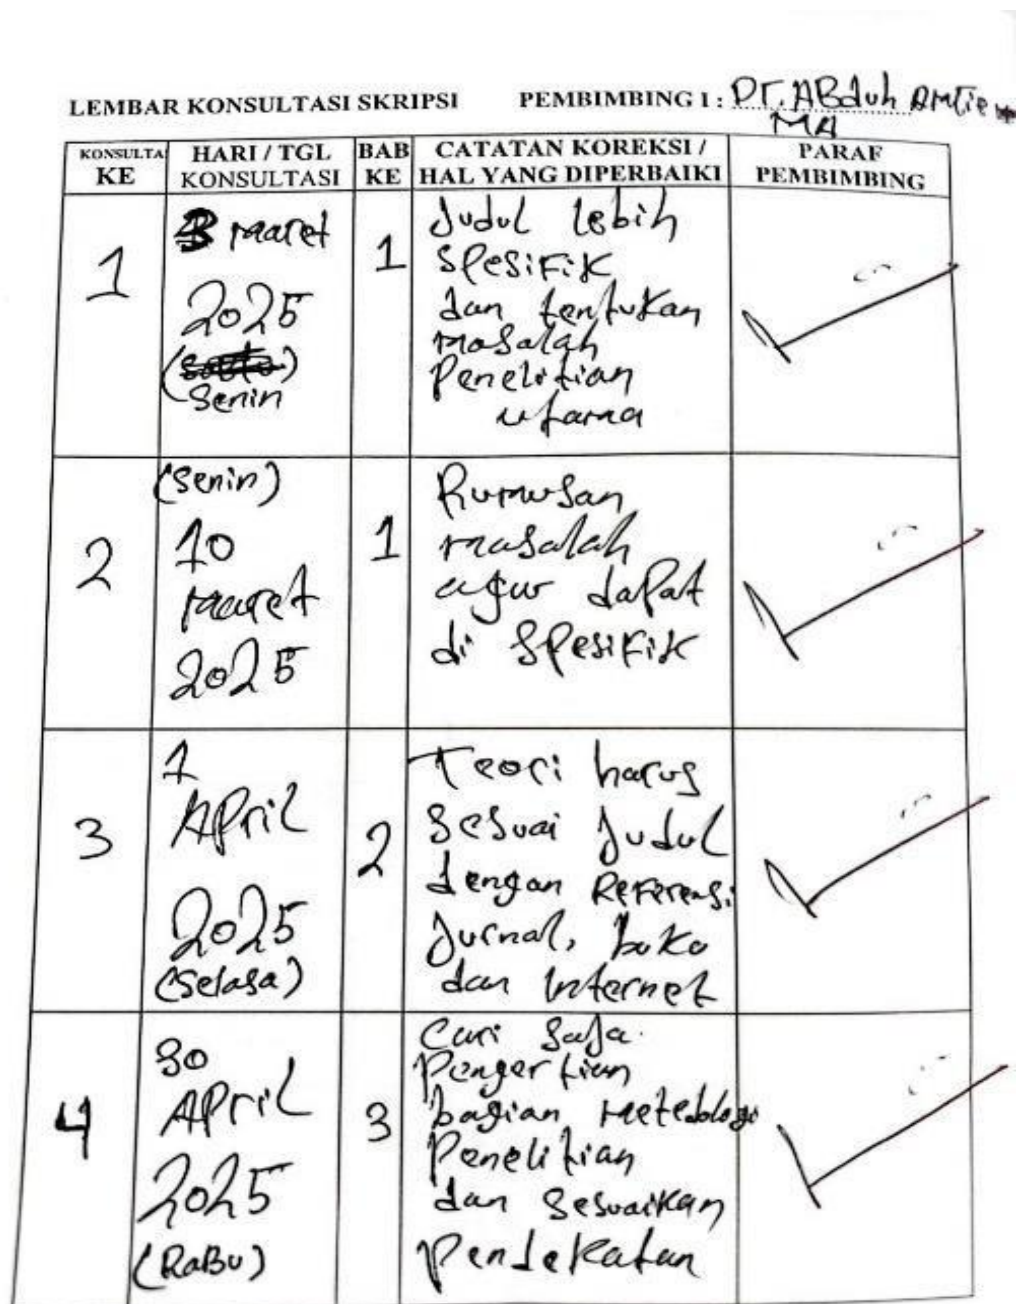 LEMBAR KONSULTASI SKRIPSI PEMBIMBING I : Dr. ABduh
MA
KONSULTA KE
HARI / TGL KONSULTASI
BAB KE
CATATAN KOREKSI / HAL YANG DIPERBAIKI
PARAF PEMBIMBING
1
3 maret
2025
Senin
1
Judul lebih
spesifik
dan tentukan
masalah
Penelitian
utama
2
(Senin)
10
maret
2025
1
Rumusan
masalah
agar dapat
di spesifik
3
1
April
2025
(Selasa)
2
Teori harus
sesuai Judul
dengan Referensi
Jurnal, buku
dan Internet
4
30
April
2025
(RaBu)
3
Cari saja
Pengertian
bagian metedologi
Penelitian
dan sesuaikan
Pendekatan